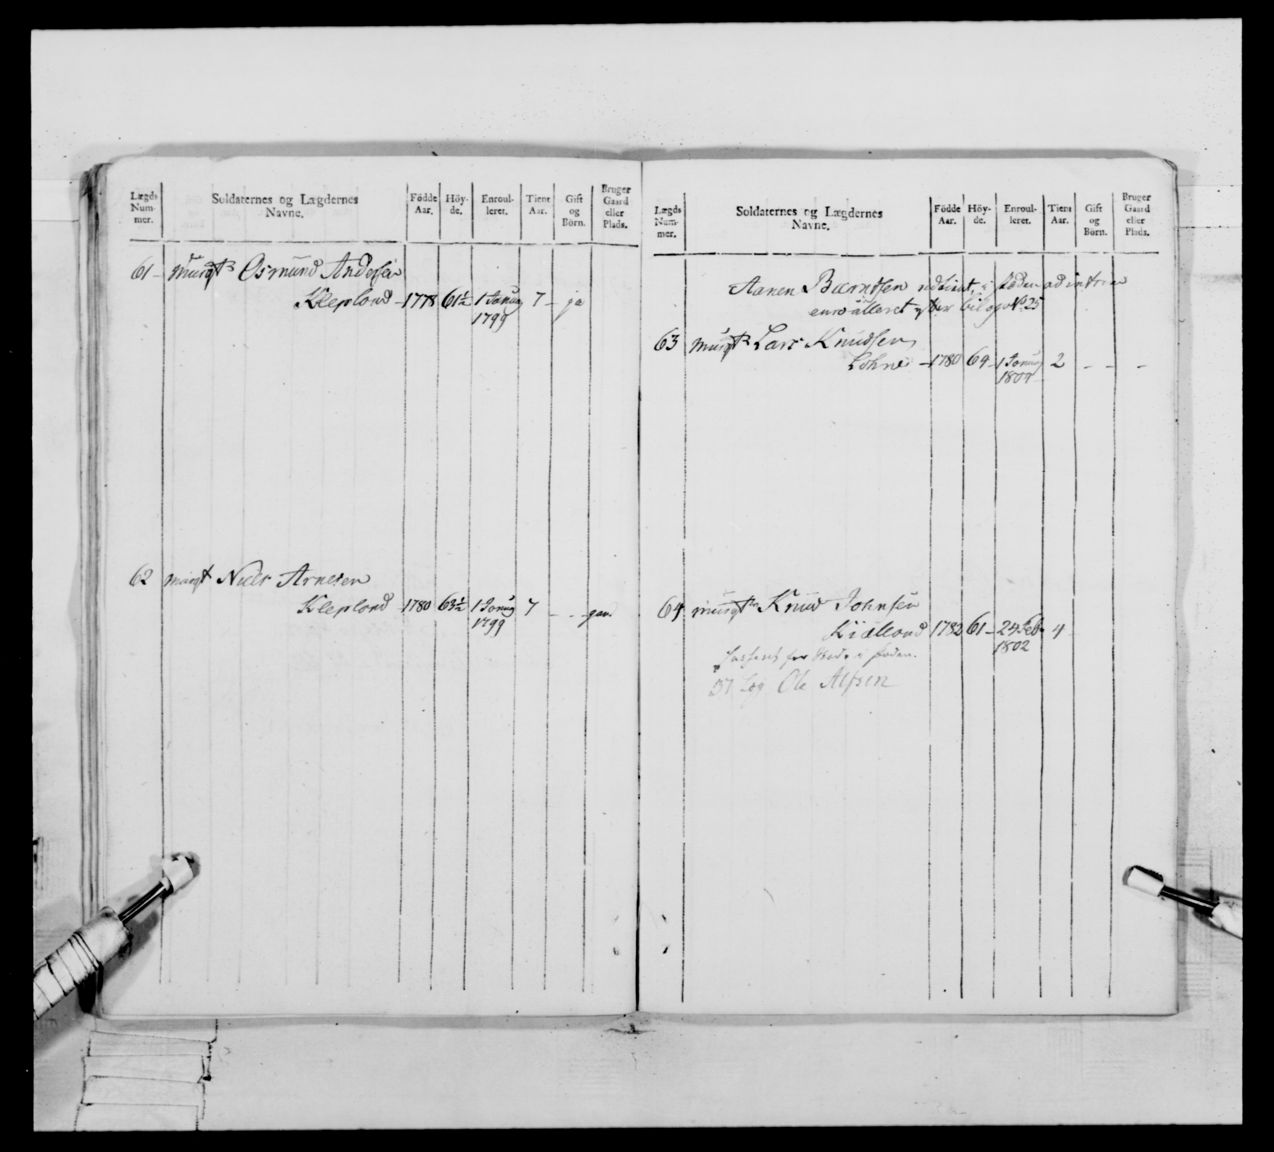 Lægds Num- mer.
Soldaternes og Lægdernes Navne.
Födde Aar.
Höy- de.
Enroul- leret.
Tient Aar.
Gift og Börn.
Bruger Gaard eller Plads.
61 - Musqt Osmund Andersen
Klepland - 1778 61½ 1 Janua 7 - ja
1799
62 musqt Niels Arnesen
Klepland - 1780 63½ 1 Janua 7 - - gaa
1799
Lægds Num- mer.
Soldaternes og Lægdernes Navne.
Födde Aar.
Höy- de.
Enroul- leret.
Tient Aar.
Gift og Börn.
Bruger Gaard eller Plads.
Aanen Berntsen
No 25
63 musqt Lars Knudsen
Lohne - 1780 64 - 1 Janua 2 - - -
1804
64 musqt Knud Johnsen
Kiælland 1782 61 - 24 Feb 4
1802
57 Læg Ole Alfsen